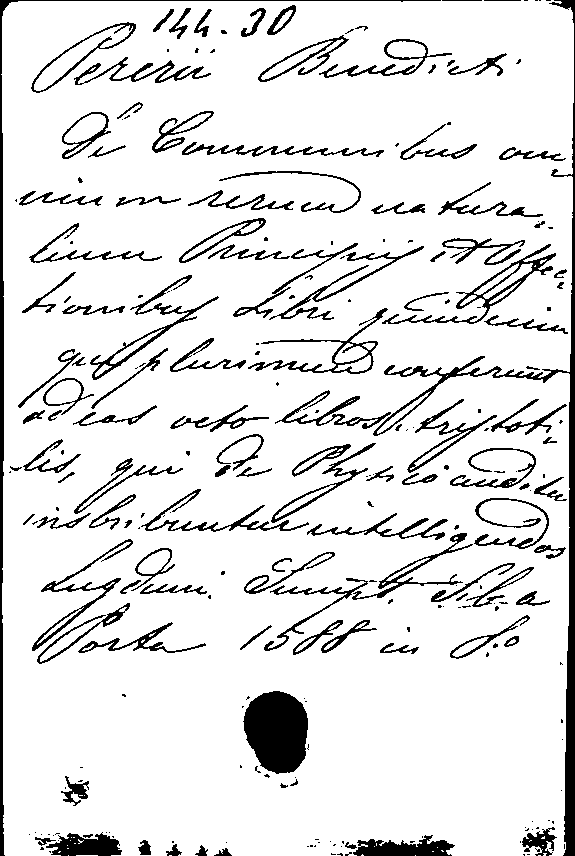 144.30
Pererii Benedicti
De Communibus om-
nium rerum natura-
lium Principiis et Affec-
tionibus Libri quindecim
qui plurimum conferunt
ad eas octo libros Aristote-
lis, qui de Physico auditu
inscribuntur intelligendos
Lugduni. Sumpt. Sib. a
Porta 1588 in 8:o